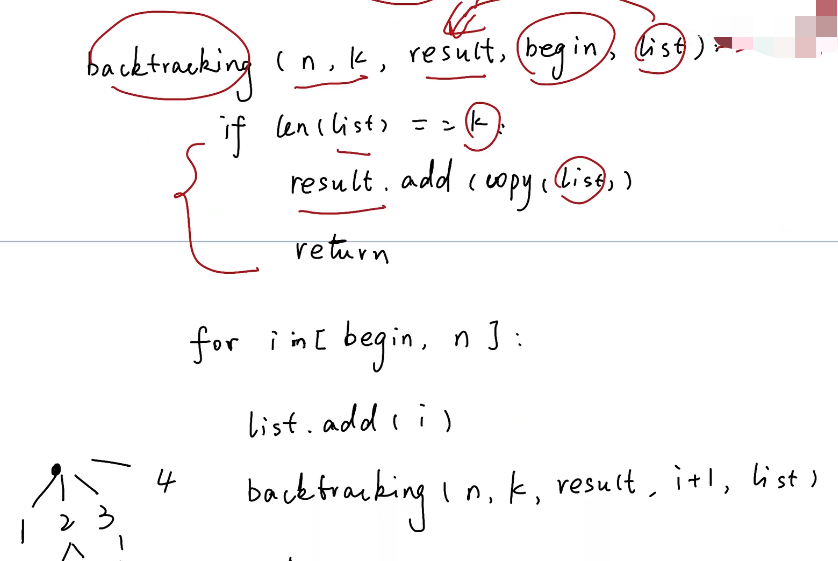 backtracking (n, k, result, begin, list):
if len(list) == k:
result.add(copy(list,)
return
for i in[begin, n]:
list.add(i)
4
backtracking(n, k, result, i+1, list)
1 2 3
1